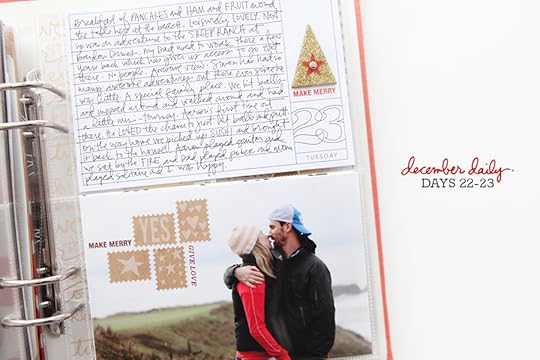 Breakfast of PANCAKES and HAM and FRUIT around
the table here at the beach. Leisurely. LOVELY. Next
up was an adventure to the SHEEP RANCH at
Bandon Dunes. My Dad used to work there a few
years back which has given us access to go out
there. No people. Awesome views. Simon has had so
many awesome adventures out there ever since he
was little. A special family place. We hit balls
and messed around and walked around and had
a little Aaron's first time out
there. He LOVED the chance to just hit balls and putt
on the way home we picked up SUSHI and brought
it back to the Aaron played guitar and
we sat by the FIRE and Dad played poker and mom
played solitaire and I was happy.
MAKE MERRY
23
TUESDAY
YES
MAKE MERRY
GIVE LOVE
december daily.
DAYS 22-23